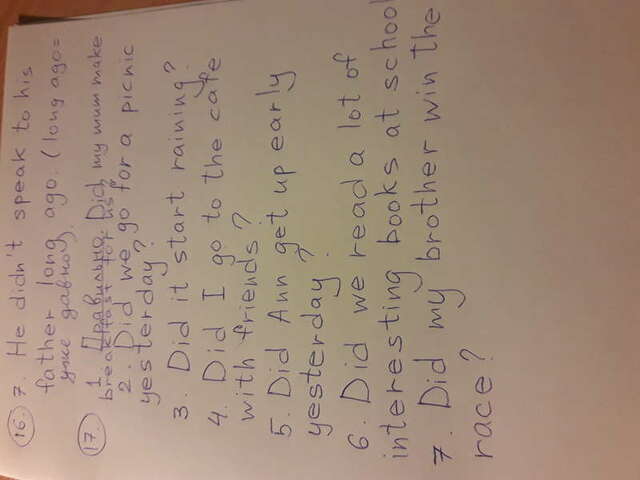 16. 7. He didn't speak to his
father long ago. (long ago =
уже давно).
17. 1. Правильно. Did my mum make
breakfast for us?
2. Did we go for a picnic
yesterday?
3. Did it start raining?
4. Did I go to the cafe
with friends?
5. Did Ann get up early
yesterday?
6. Did we read a lot of
interesting books at school
7. Did my brother win the
race?